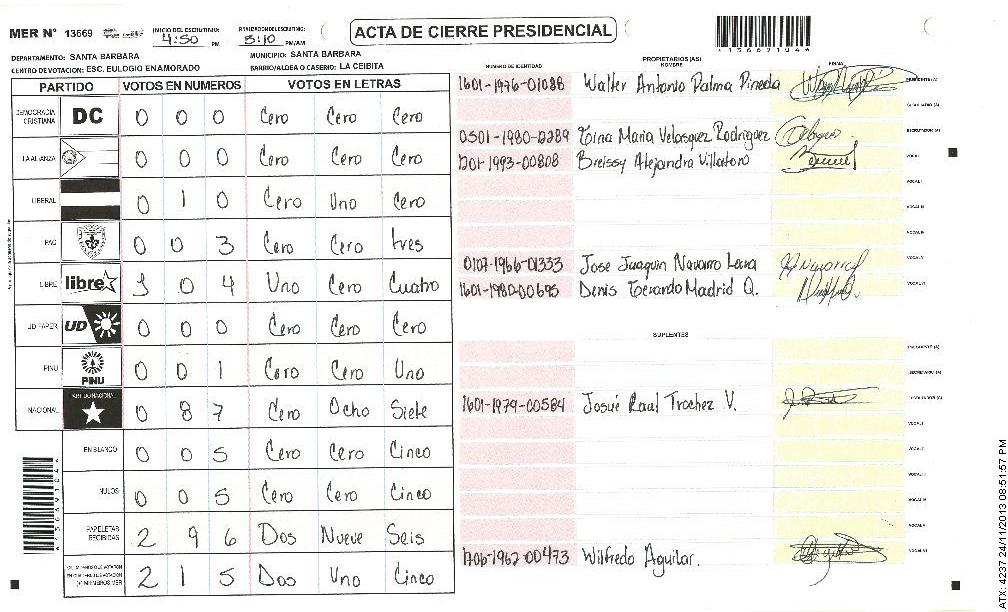 MER Nº 13669
INICIO DEL ESCRUTINIO:
4:50 PM
FINALIZACION DEL ESCRUTINIO:
5:10 PM/AM
ACTA DE CIERRE PRESIDENCIAL
DEPARTAMENTO: SANTA BARBARA
MUNICIPIO: SANTA BARBARA
CENTRO DE VOTACION: ESC. EULOGIO ENAMORADO
BARRIO/ALDEA O CASERIO: LA CEIBITA
PARTIDO VOTOS EN NUMEROS VOTOS EN LETRAS
DEMOCRACIA CRISTIANA DC 0 0 0 Cero Cero Cero
LA ALIANZA 0 0 0 Cero Cero Cero
LIBERAL 0 1 0 Cero Uno Cero
PAC 0 0 3 Cero Cero tres
LIBRE libre 1 0 4 Uno Cero Cuatro
UD FAPER UD 0 0 0 Cero Cero Cero
PINU PINU 0 0 1 Cero Cero Uno
NACIONAL PARTIDO NACIONAL 0 8 7 Cero Ocho Siete
EN BLANCO 0 0 5 Cero Cero Cinco
NULOS 0 0 5 Cero Cero Cinco
PAPELETAS RECIBIDAS 2 9 6 Dos Nueve Seis
(+) MIEMBROS MER 2 1 5 Dos Uno Cinco
PROPIETARIOS (AS)
NUMERO DE IDENTIDAD NOMBRE FIRMA
1601-1976-01088 Walter Antonio Palma Pineda PRESIDENTE (A)
SECRETARIO (A)
0501-1980-02289 Tina Maria Velasquez Rodriguez ESCRUTADOR (A)
1201-1993-00808 Breissy Alejandra Villatoro VOCAL I
VOCAL II
VOCAL III
VOCAL IV
0107-1966-01333 Jose Joaquin Navarro Lara VOCAL V
1601-1980-00695 Denis Gerardo Madrid Q. VOCAL VI
SUPLENTES
PRESIDENTE (A)
SECRETARIO (A)
1601-1979-00584 Josué Raul Trochez V. ESCRUTADOR (A)
VOCAL I
VOCAL II
VOCAL III
VOCAL IV
VOCAL V
1706-1962-00473 Wilfredo Aguilar. VOCAL VI
ATX: 4237 24/11/2013 08:51:57 PM